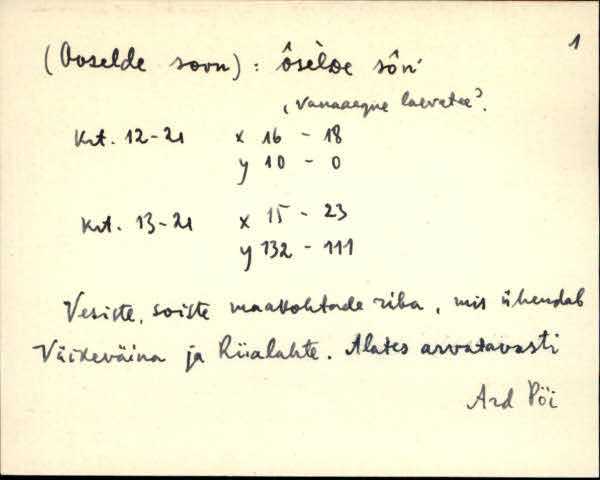 1
(Ooselde soon): ôsèlde sôn'
"vanaaegne laevatee".
Krt. 12-21 x 16 - 18
y 10 - 0
Krt. 13-21 x 15 - 23
y 132 - 111
Vesiste, soiste maakohtade riba, mis ühendab
Väikeväina ja Riialahte. Alates arvatavasti
Ard Pöi